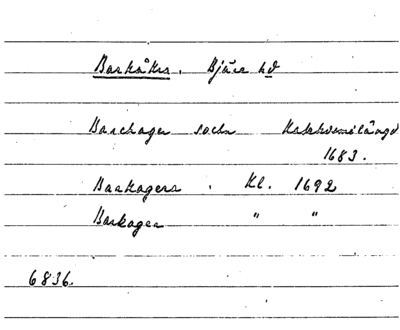 Barkåkra. Bjäre hd
Barchager sochn Kalskvsmslängd
1683.
Barkagera . Kl. 1692
Barkager " "
6836.